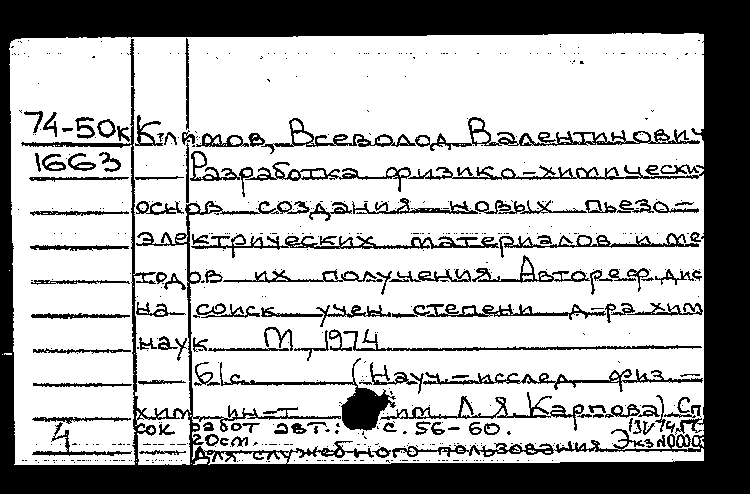 74-50к Климов, Всеволод Валентинович
1663 Разработка физико-химически
основ создания новых пьезо-
электрических материалов и ме-
тодов их получения. Автореф. дис
на соиск учен. степени д-ра хим
наук М, 1974
б/с. (Науч.-исслед. физ.-
хим ин-т им. Л. Я. Карпова) Сп
4 сок работ авт.: с. 56-60.
20см.
Для служебного пользования Экз №